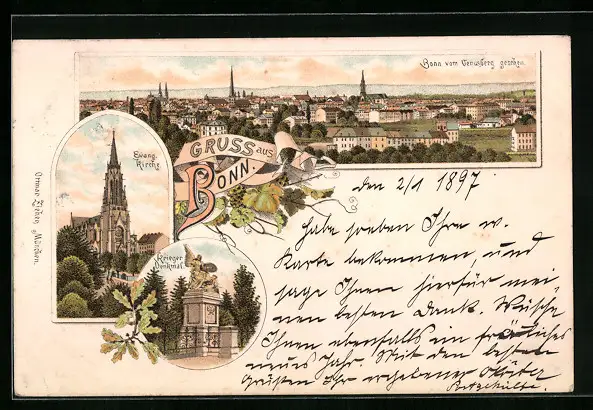 Bonn vom Venusberg gesehen.
GRUSS aus
BONN.
Evang.
Kirche.
Krieger
Denkmal.
Ottmar Zieher, München.
den 2/1 1897
Habe soeben Ihre w.
Karte bekommen, und
sage Ihnen hierfür mei-
nen besten Dank. Wüsche
Ihnen ebenfalls ein fröhliches
neues Jahr. Mit den besten
Grüßen Ihr ergebener
Postgehülfe.